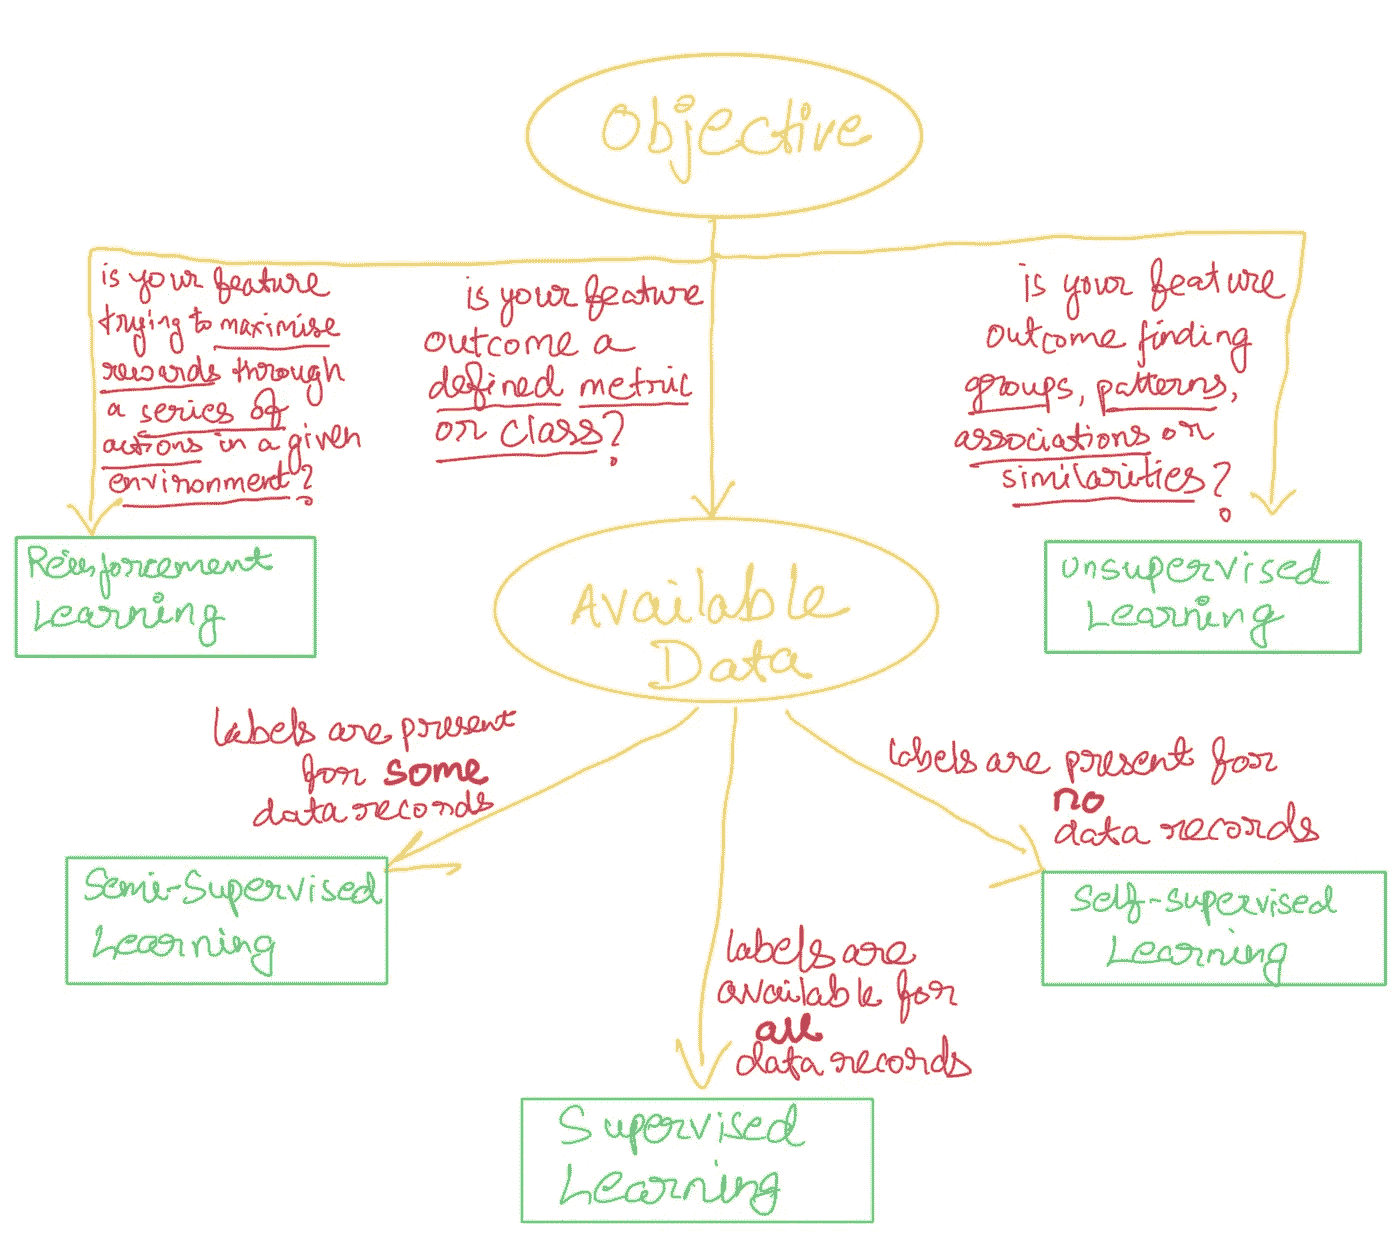 Objective
is your feature
trying to maximise
rewards through
a series of
actions in a given
environment?
is your feature
outcome a
defined metric
or class?
is your feature
outcome finding
groups, patterns,
associations or
similarities?
Reinforcement
Learning
Available
Data
Unsupervised
Learning
labels are present
for some
data records
labels are present for
no
data records
Semi-Supervised
Learning
Self-supervised
Learning
labels are
available for
all
data records
Supervised
Learning